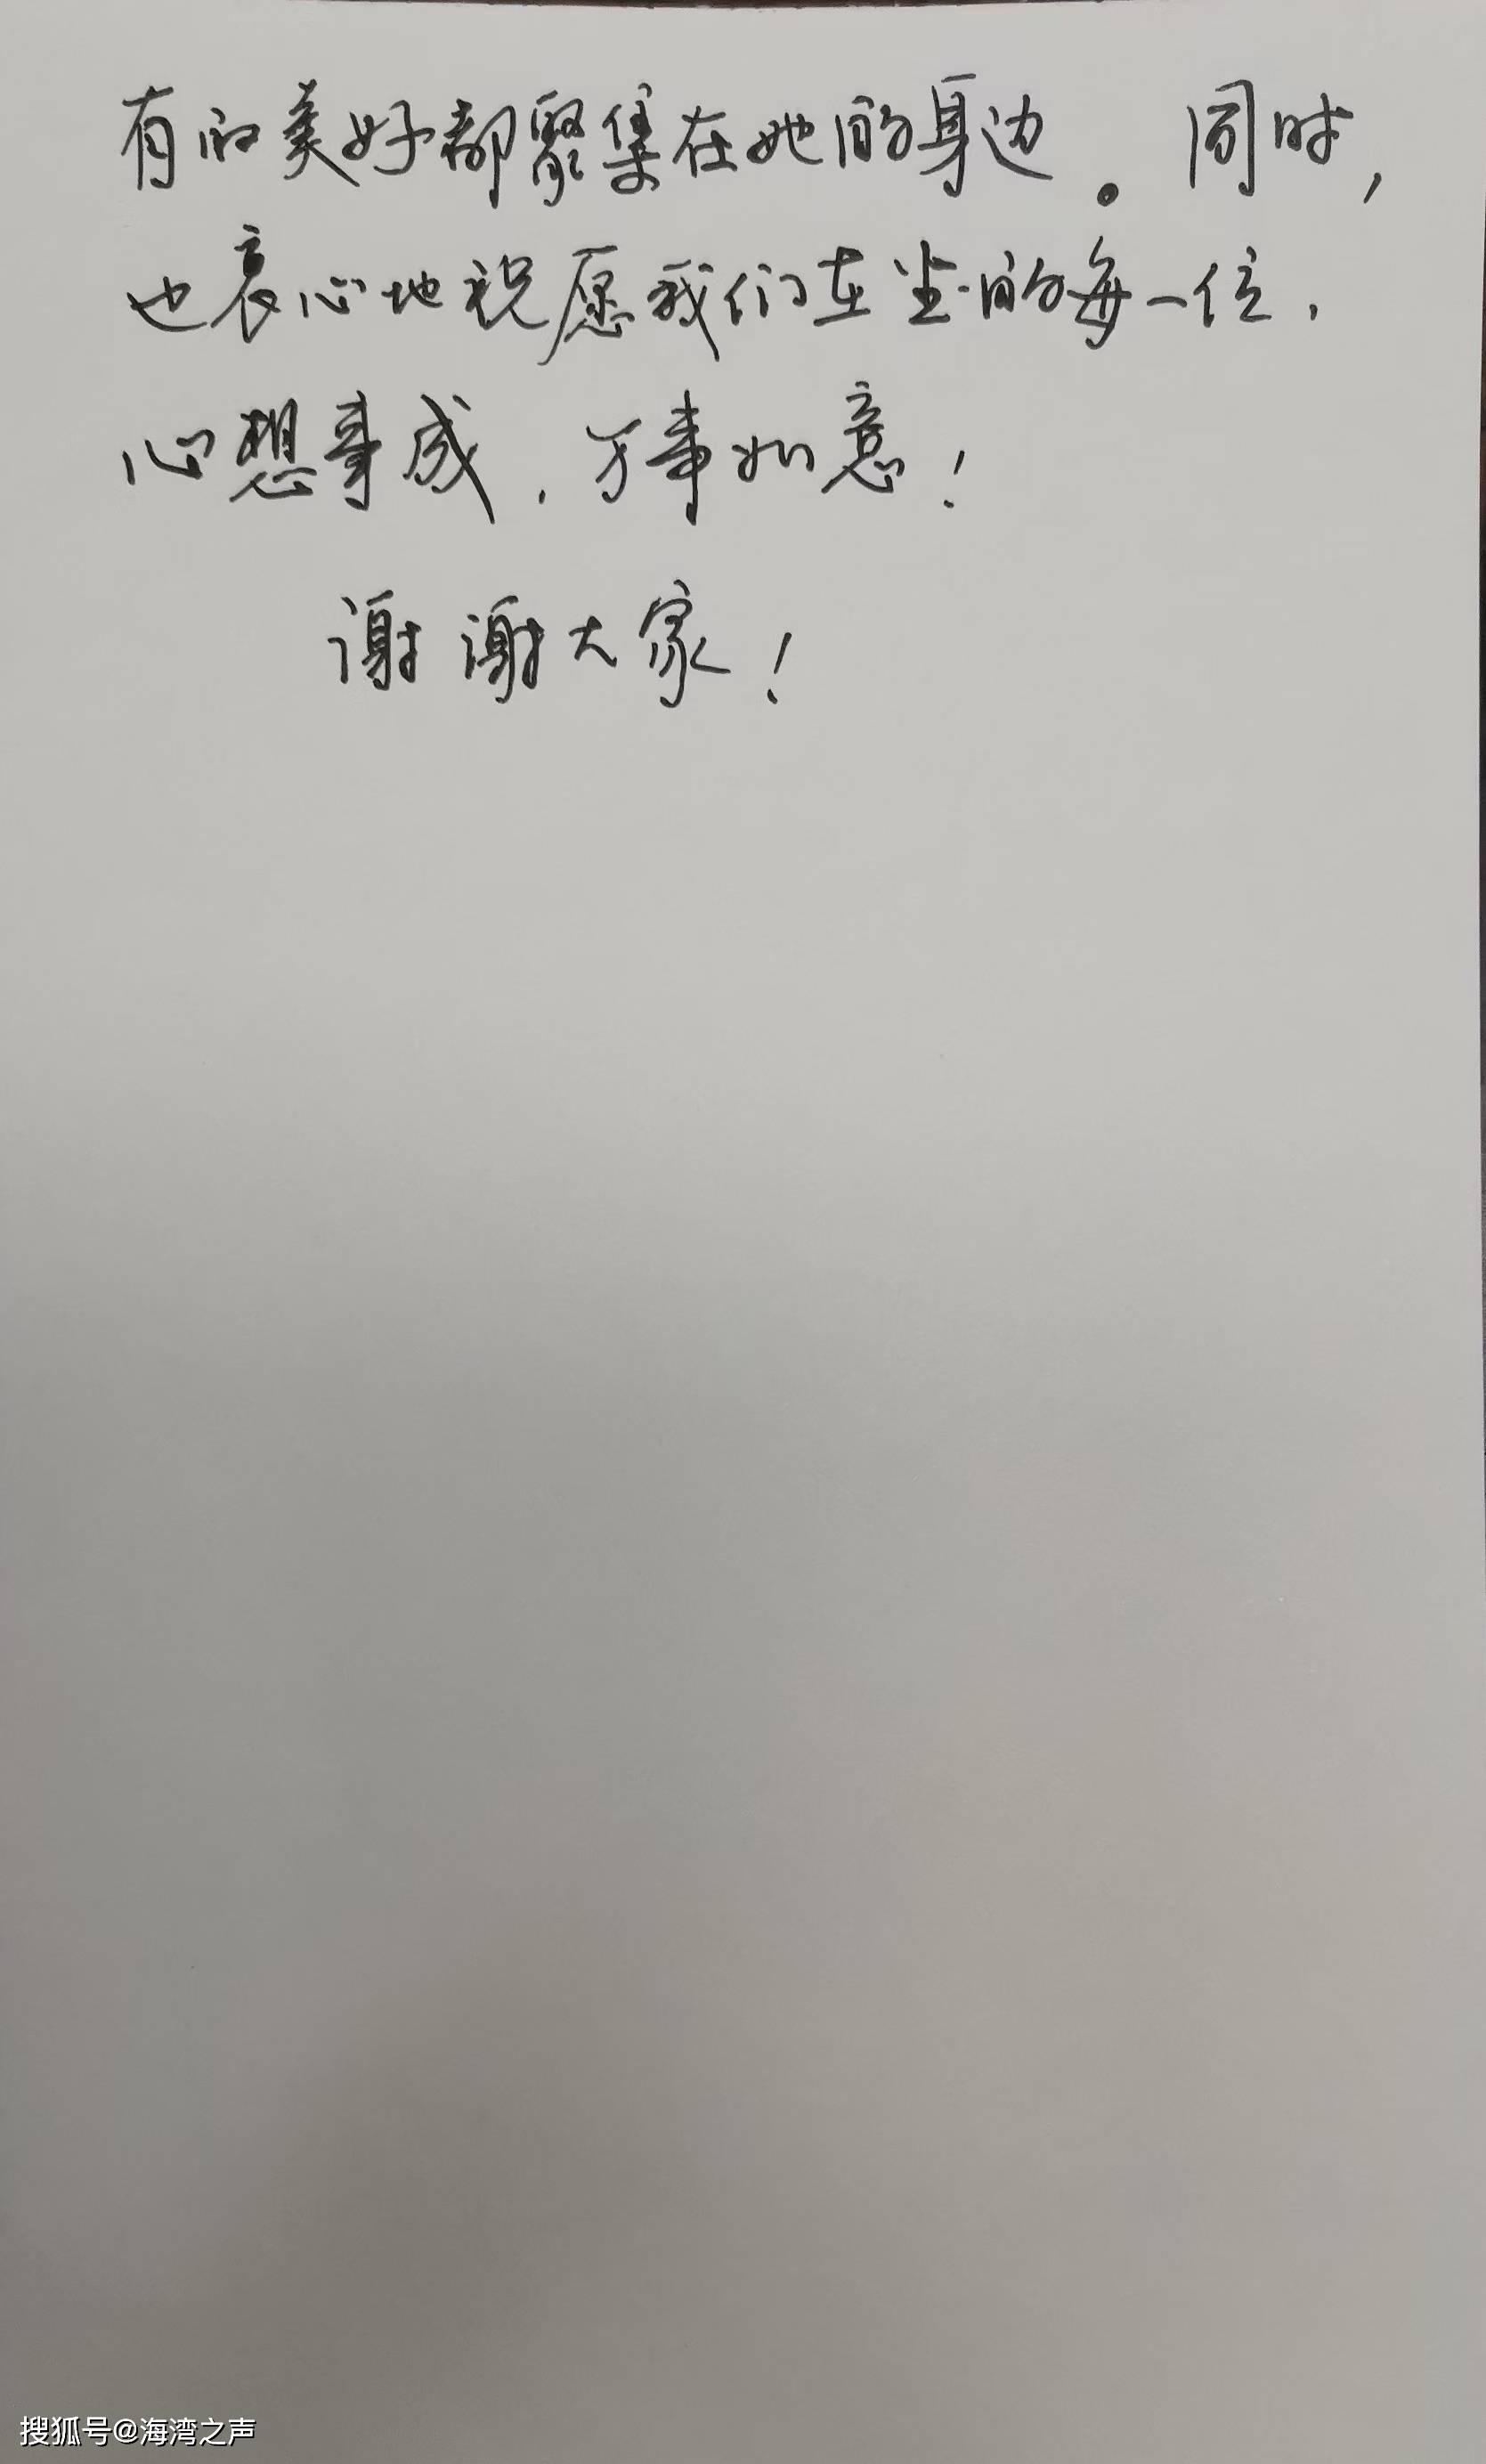 有的美好都聚集在她的身边。同时,
也衷心地祝愿我们在坐的每一位,
心想事成,万事如意!
谢谢大家!
搜狐号@海湾之声